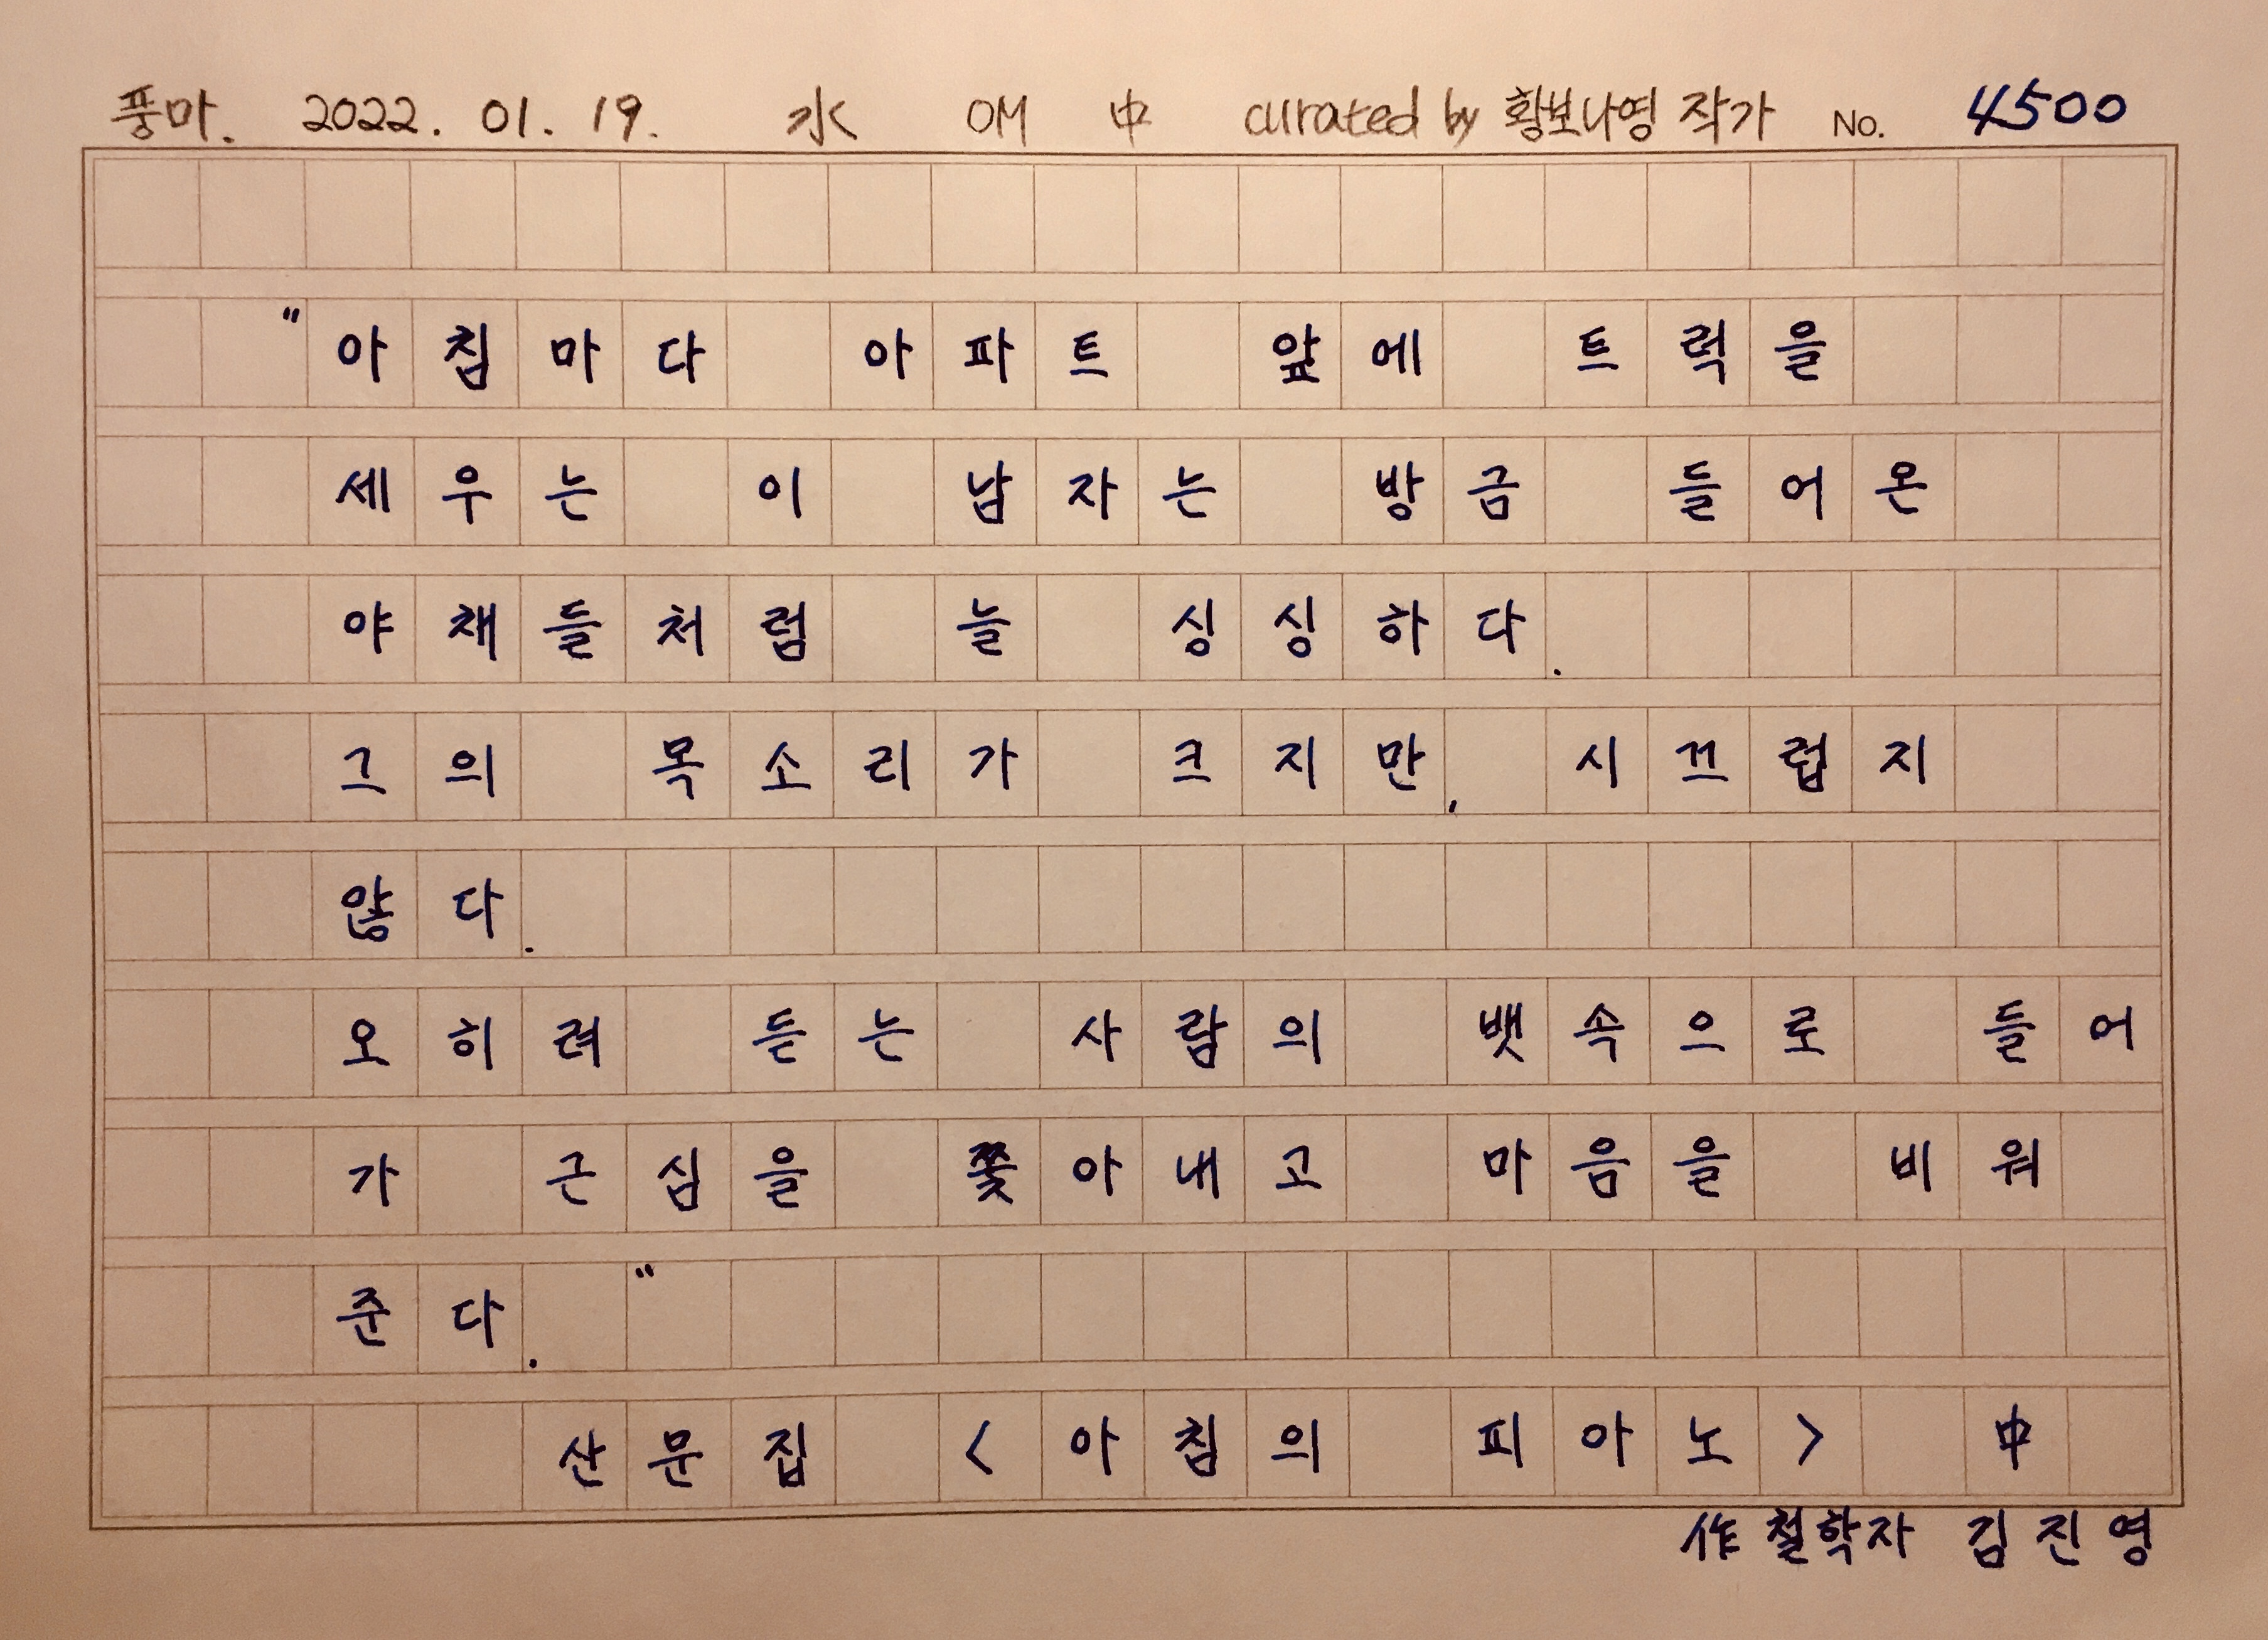 풍마. 2022. 01. 19. 水 OM 中 curated by 황보나영 작가 No. 4500
"아침마다 아파트 앞에 트럭을
세우는 이 남자는 방금 들어온
야채들처럼 늘 싱싱하다.
그의 목소리가 크지만, 시끄럽지
않다.
오히려 듣는 사람의 뱃속으로 들어
가 근심을 쫓아내고 마음을 비워
준다."
산문집 <아침의 피아노> 中
作 철학자 김진영